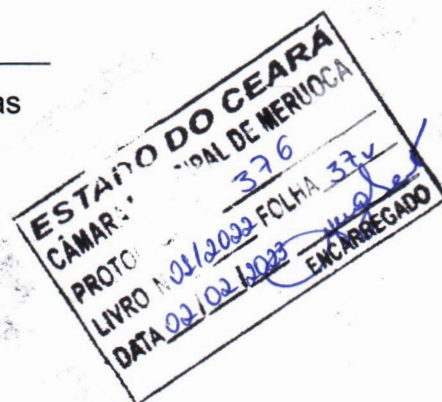 as
ESTADO DO CEARÁ
CÂMAR PAL DE MERUOCA
PROTO 376
LIVRO N 02/2022 FOLHA 37v
DATA 02/02/2023
ENCARREGADO